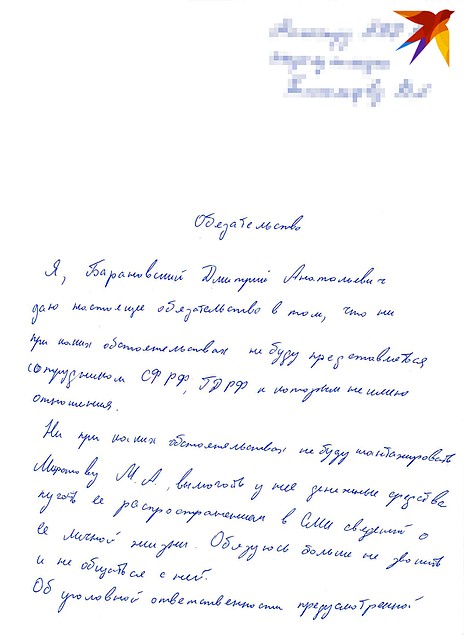 Обезательство
Я, Барановский Дмитрий Анатольевич
даю настоящее обязательство в том, что ни
при каких обстоятельствах не буду представляться
сотрудником СФ РФ, ГД РФ к которым не имею
отношения.
Ни при каких обстоятельствах не буду шантажировать
М.А., вымогать у нее денежные средства
пугать ее распространением в СМИ сведений о
ее личной жизни. Обязуюсь больше не звонить
и не общаться с ней.
Об уголовной ответственности предусмотренной